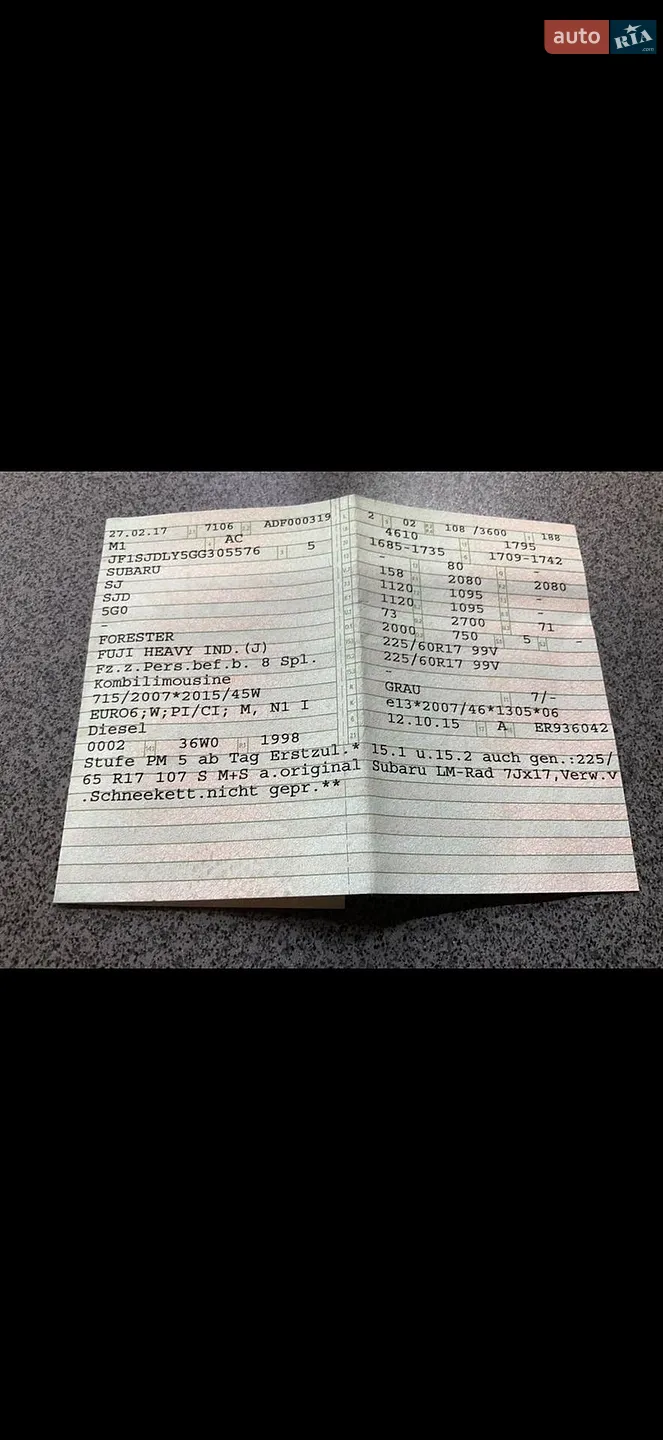 auto RIA .com
27.02.17 7106 ADF000319
M1 AC
JF1SJDLY5GG305576 5
SUBARU
SJ
SJD
5G0
-
FORESTER
FUJI HEAVY IND.(J)
Fz.z.Pers.bef.b. 8 Spl.
Kombilimousine
715/2007*2015/45W
EURO6;W;PI/CI; M, N1 I
Diesel
0002 36W0 1998
2 02 108 /3600 188
4610 1795
1685-1735 1709-1742
- 80 -
158 2080 2080
1120 1095 -
1120 1095 -
73 2700 71
2000 750 5 -
225/60R17 99V
225/60R17 99V
-
GRAU 7/-
e13*2007/46*1305*06
12.10.15 A ER936042
Stufe PM 5 ab Tag Erstzul.* 15.1 u.15.2 auch gen.:225/
65 R17 107 S M+S a.original Subaru LM-Rad 7Jx17,Verw.v
.Schneekett.nicht gepr.**